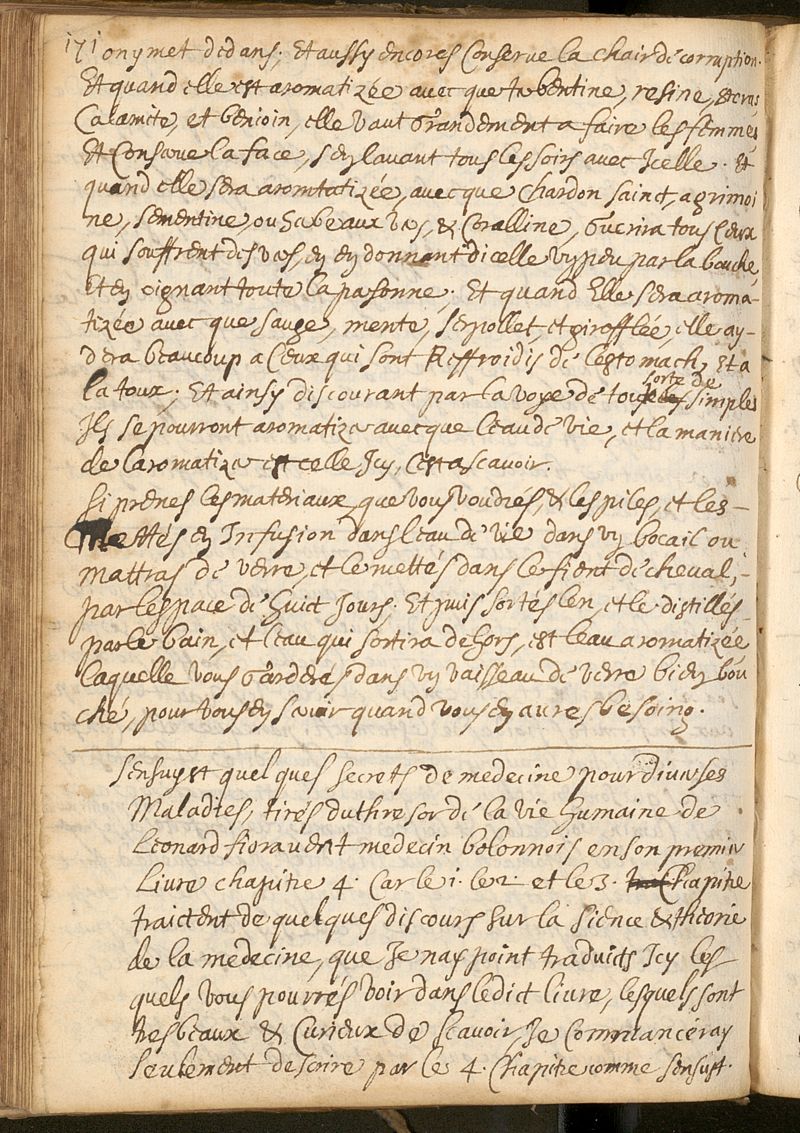 171 on y met dedans; Et aussy encores Conserve la chair de corruption.
Et quand elle est aromatizée avecque terbentine, resine, storax
Calamite, et benioin, elle vaut Grandement a faire les femmes
Et Conserve la face, s'en lavant tous les soirs avec Icelle. Et
quand elle sera aromtatizée, avecque Chardon sainct, agrimoi
ne, sementine, ou Habeaux vers, & Coralline, Guerira tous Ceux
qui souffrent des vers, en en donnant dicelle un peu par la bouche,
et en oignant toute la personne; Et quand Elle sera aroma-
tizée avecque sauge, mente, serpollet, et girofflée, elle ay-
dera beaucoup a Ceux qui sont Reffroidis de lestomach, Et a
la toux; Et ainsy discourant par la voye de tou sorte de simples
Ils se pourront aromatizer avecque leau de vie, et la maniere
de laromatizer est celle Icy, Cest a scavoir.
Si prenes les materiaux que vous voudres, & les piles, et les-
Mettes en Infusion dans leau de vie dans un bocail ou
mattras de verre, et le mettés dans le fient de cheval,-
par lespace de huict Jours. Et puis sortés len, et le distillés-
par le bain, et leau qui sortira dehors, est leau aromatizée
laquelle vous Garderés dans un vaisseau de verre bien bou
ché, pour vous en servir quand vous en aures besoing.
Sensuyt quelques secrets de medecine pour diverses
Maladies, tirés du thresor de la vie humaine de
Leonard fioravent medecin bolonnois en son premier
Livre chapitre 4. Car le 1. le 2. et le 3. Chapitre
traictent de quelques discours sur la sience & theorie
de la medecine, que Je nay point traduicts Icy les
quels vous pourrés voir dans ledict livre, lesquels sont
tres beaux & Curieux de scavoir, Je Commanceray
seulement descrire par le 4. Chapitre comme sensuyt.